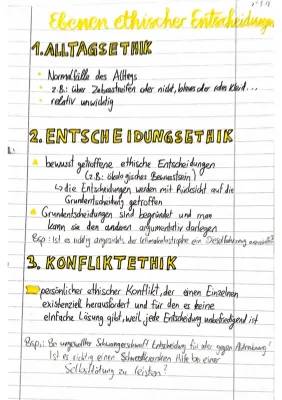 Ebenen ethischer Entscheidungen
1. ALLTAGSETHIK
Normalfälle des Alltags
z.B.: über Zebrastreifen oder nicht, blaues oder rotes Kleid...
relativ unwichtig
2. ENTSCHEIDUNGSETHIK
bewusst getroffene ethische Entscheidungen
(z.B.: ökologisches Bewusstsein)
↳ die Entscheidungen werden mit Rücksicht auf die
Grundentscheidung getroffen
Grundentscheidungen sind begründet und man
kann sie den anderen argumentativ darlegen
Bsp.: Ist es richtig angesichts der Klimakatastrophe ein Dieselfahrzeug
3. KONFLIKTETHIK
persönlicher ethischer Konflikt, der einen Einzelnen
existenziell herausfordert und für den es keine
einfache Lösung gibt, weil jede Entscheidung unbefriedigend ist
Bsp.: Bei ungewollter Schwangerschaft Entscheidung für oder gegen Abtreibung?
Ist es richtig einen Schwerkranken Hilfe bei einer
Selbsttötung zu leisten?